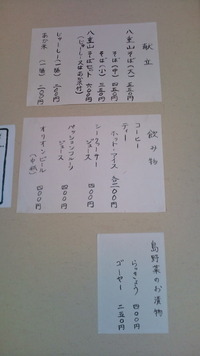 献立
八重山そば(大) 五五〇円
そば(中) 四五〇円
そば(小) 三五〇円
八重山そばセット 六〇〇円
じゅーしー(一膳) 二〇〇円
飲み物
コーヒー
ティー
ホット・アイス 各二〇〇円
シークヮーサー
ジュース 四〇〇円
パッションフルーツ
ジュース 四〇〇円
オリオンビール 四〇〇円
島野菜のお漬物
らっきょう 四〇〇円
ゴーヤー 二五〇円